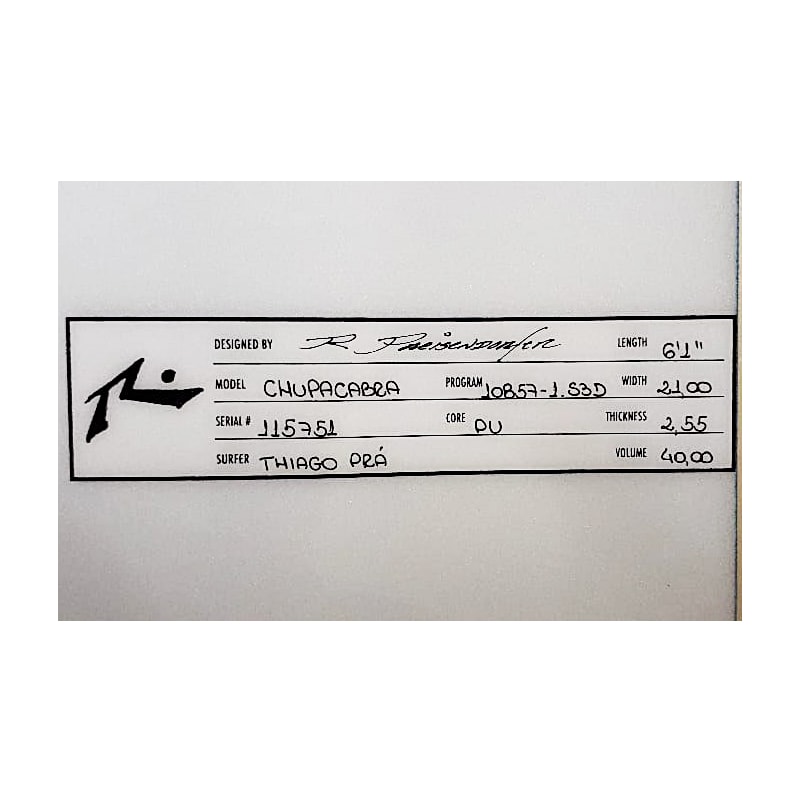 DESIGNED BY R. Preisendorfer LENGTH 6'1"
MODEL CHUPACABRA PROGRAM 10857-1.S3D WIDTH 21,00
SERIAL # 115751 CORE PU THICKNESS 2,55
SURFER THIAGO PRÁ VOLUME 40,00